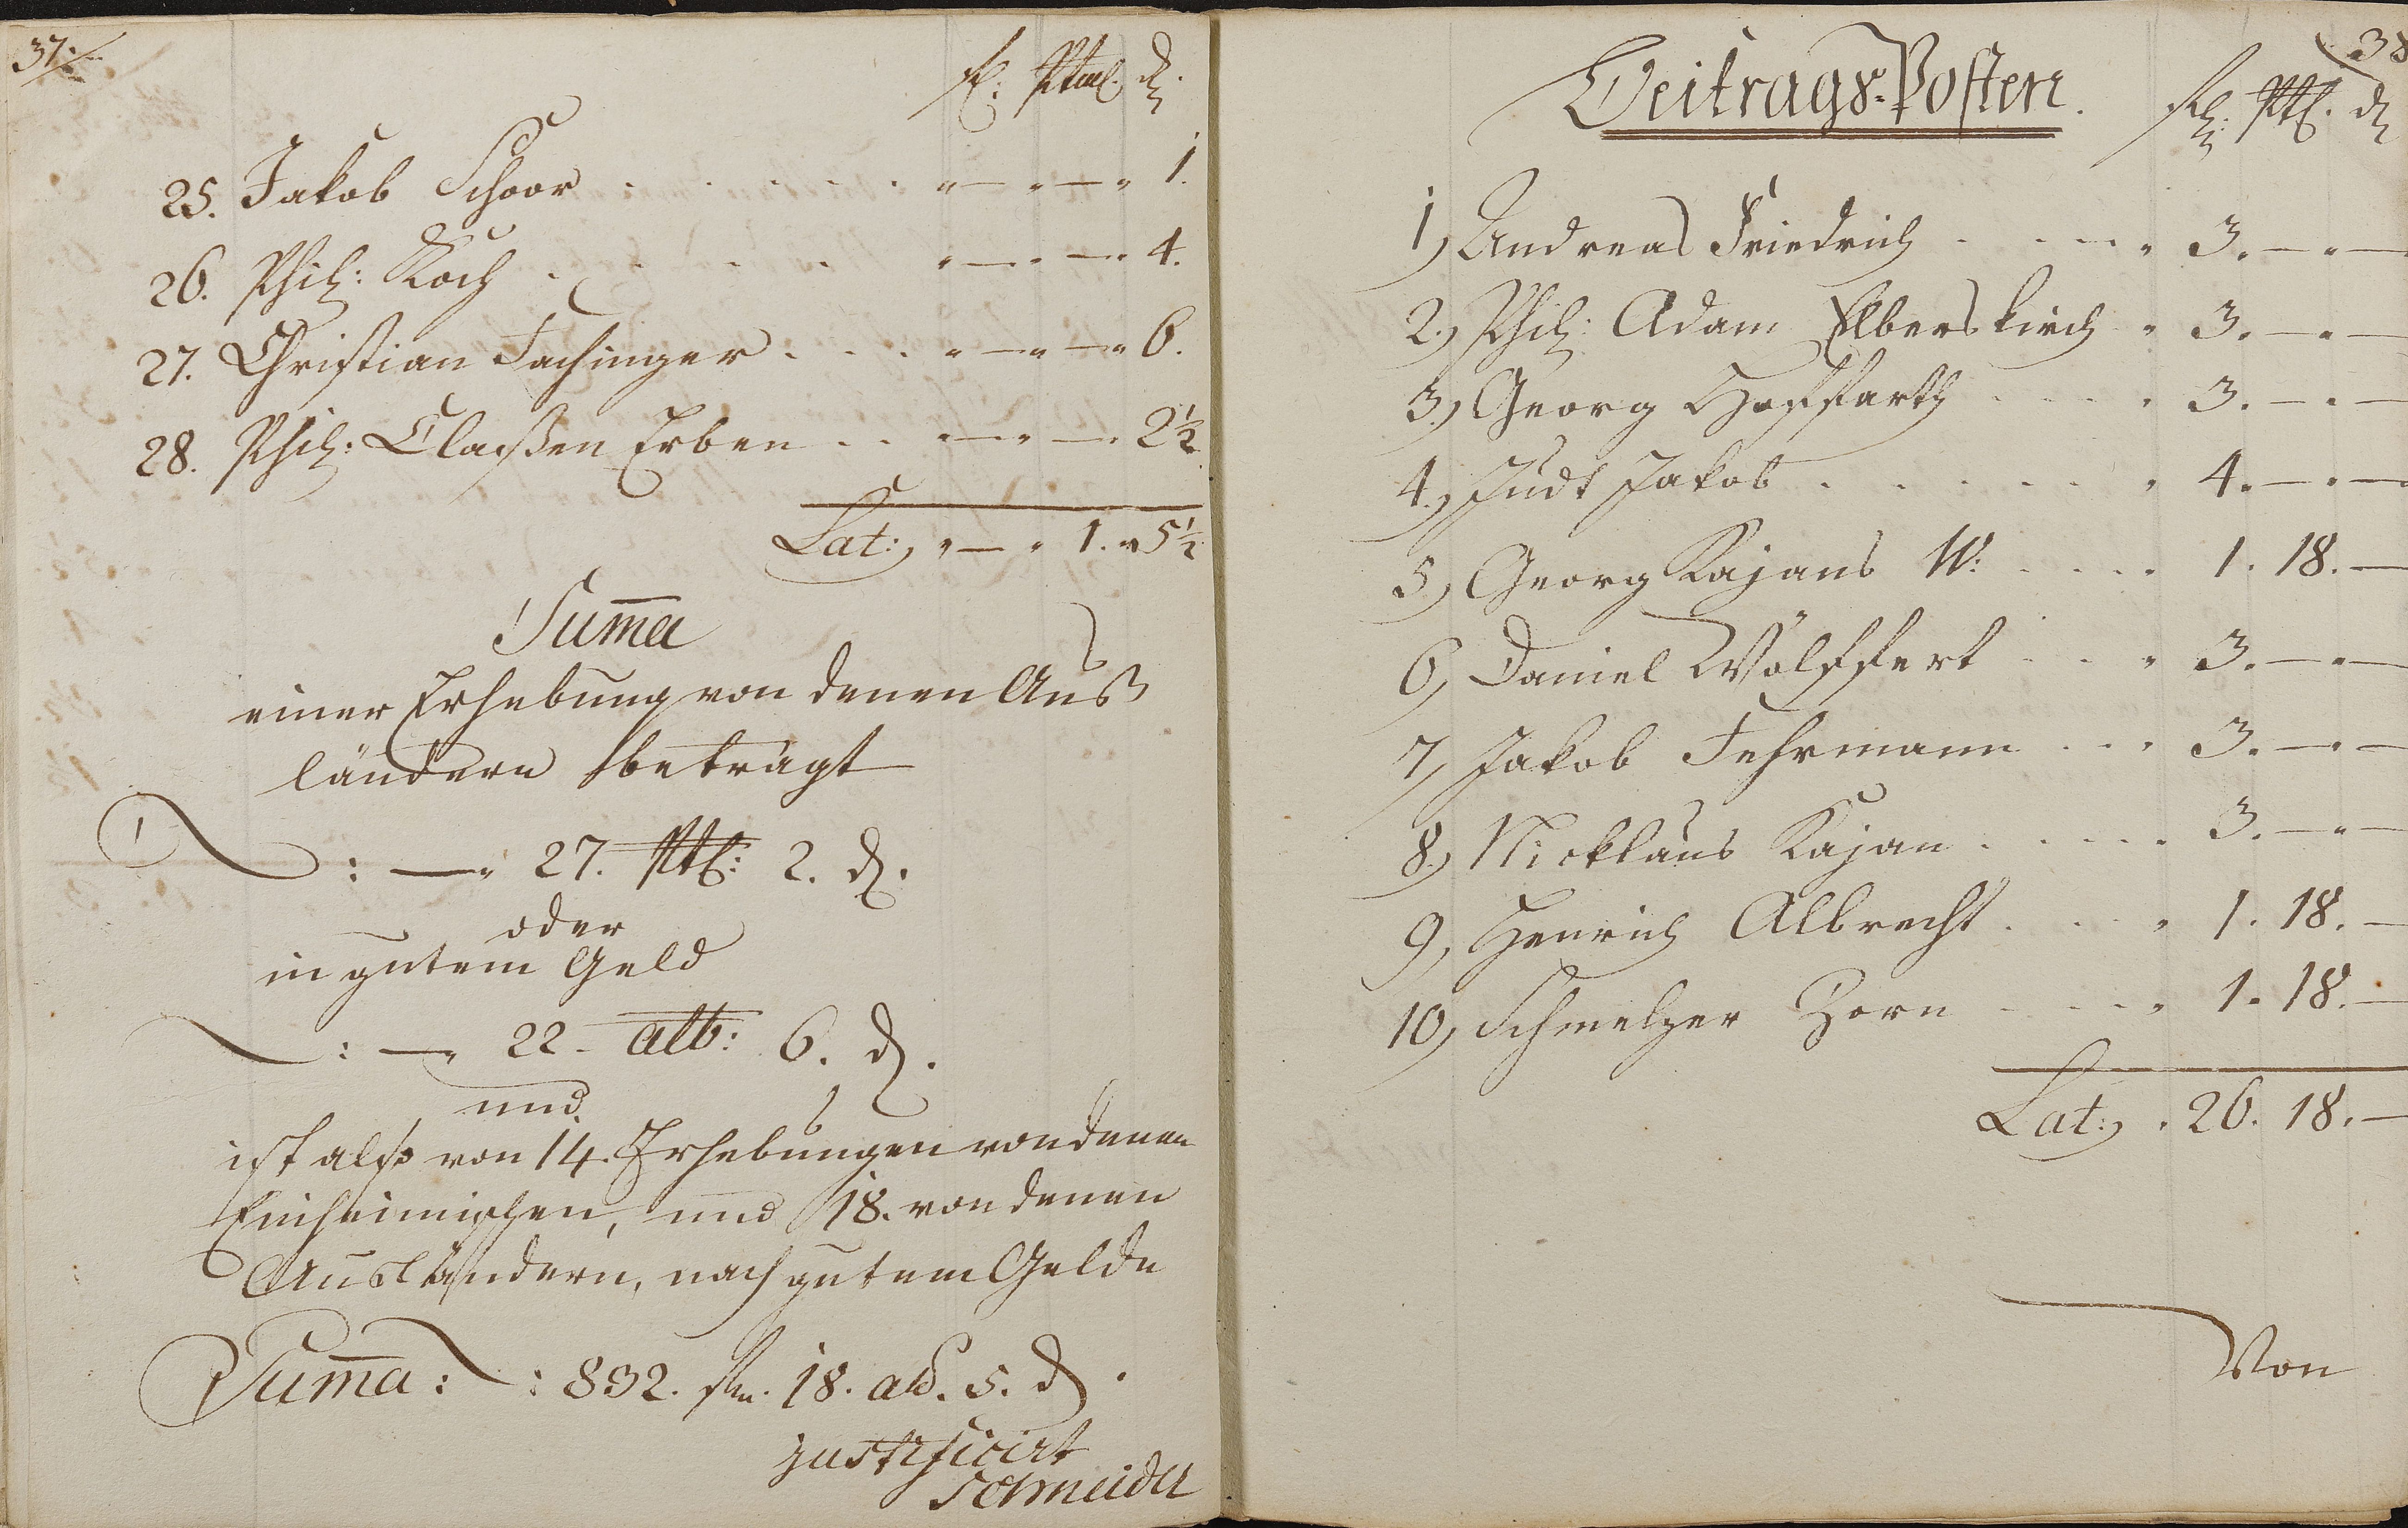 37.
fl. Rtml. d.
25. Jakob Schoor . . . . . . " — " — " 1.
26. Phil: Koch . . . . " — " — " 4.
27. Christian Fachinger . . . . " — " — " 6.
28. Phil: Claßen Erben . . " — " — " 2½
Lat: " — " 1. " 5½
Summa
einer Erhebung von denen Aus
ländern beträgt
: — " 27. Rtl: 2. d.
oder
in gutem Geld
: — " 22. alb: 6. d.
und
ist also von 14. Erhebungen von denen
Einheimischen, und 18. von denen
Ausländern, nach gutem Gelde
Summa: : 832. fln. 18. alb. 5. d.
justificirt
Schneider
38
Beitrags-Posten.
fl: Rtl. d
1) Andreas Friedrich . . . . " 3. — " —
2.) Phil: Adam Elberskirch " 3. — " —
3.) Georg Hoffarth . . . . " 3. — " —
4.) Judt Jakob . . . . . . " 4. — " —
5.) Georg Kajans W: . . . . " 1. 18. —
6.) Daniel Wölffert . . . " 3. — " —
7.) Jakob Fehrmann . . . " 3. — " —
8.) Nicklaus Kajan . . . . . " 3. — " —
9.) Henrich Albrecht . . . " 1. 18. —
10.) Schmelzer Zorn . . . . " 1. 18. —
Lat: " 26. 18. —
Von